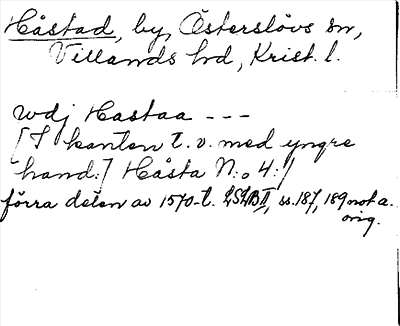 Håstad, by, Österslövs sn,
Villands hd, Krist. l.
wdj Hastaa ---
[I kanten t. v. med yngre
hand:] Håsta N:o 4:/
förra delen av 1570-t. LSLB II, ss. 187, 189 not a.
orig.